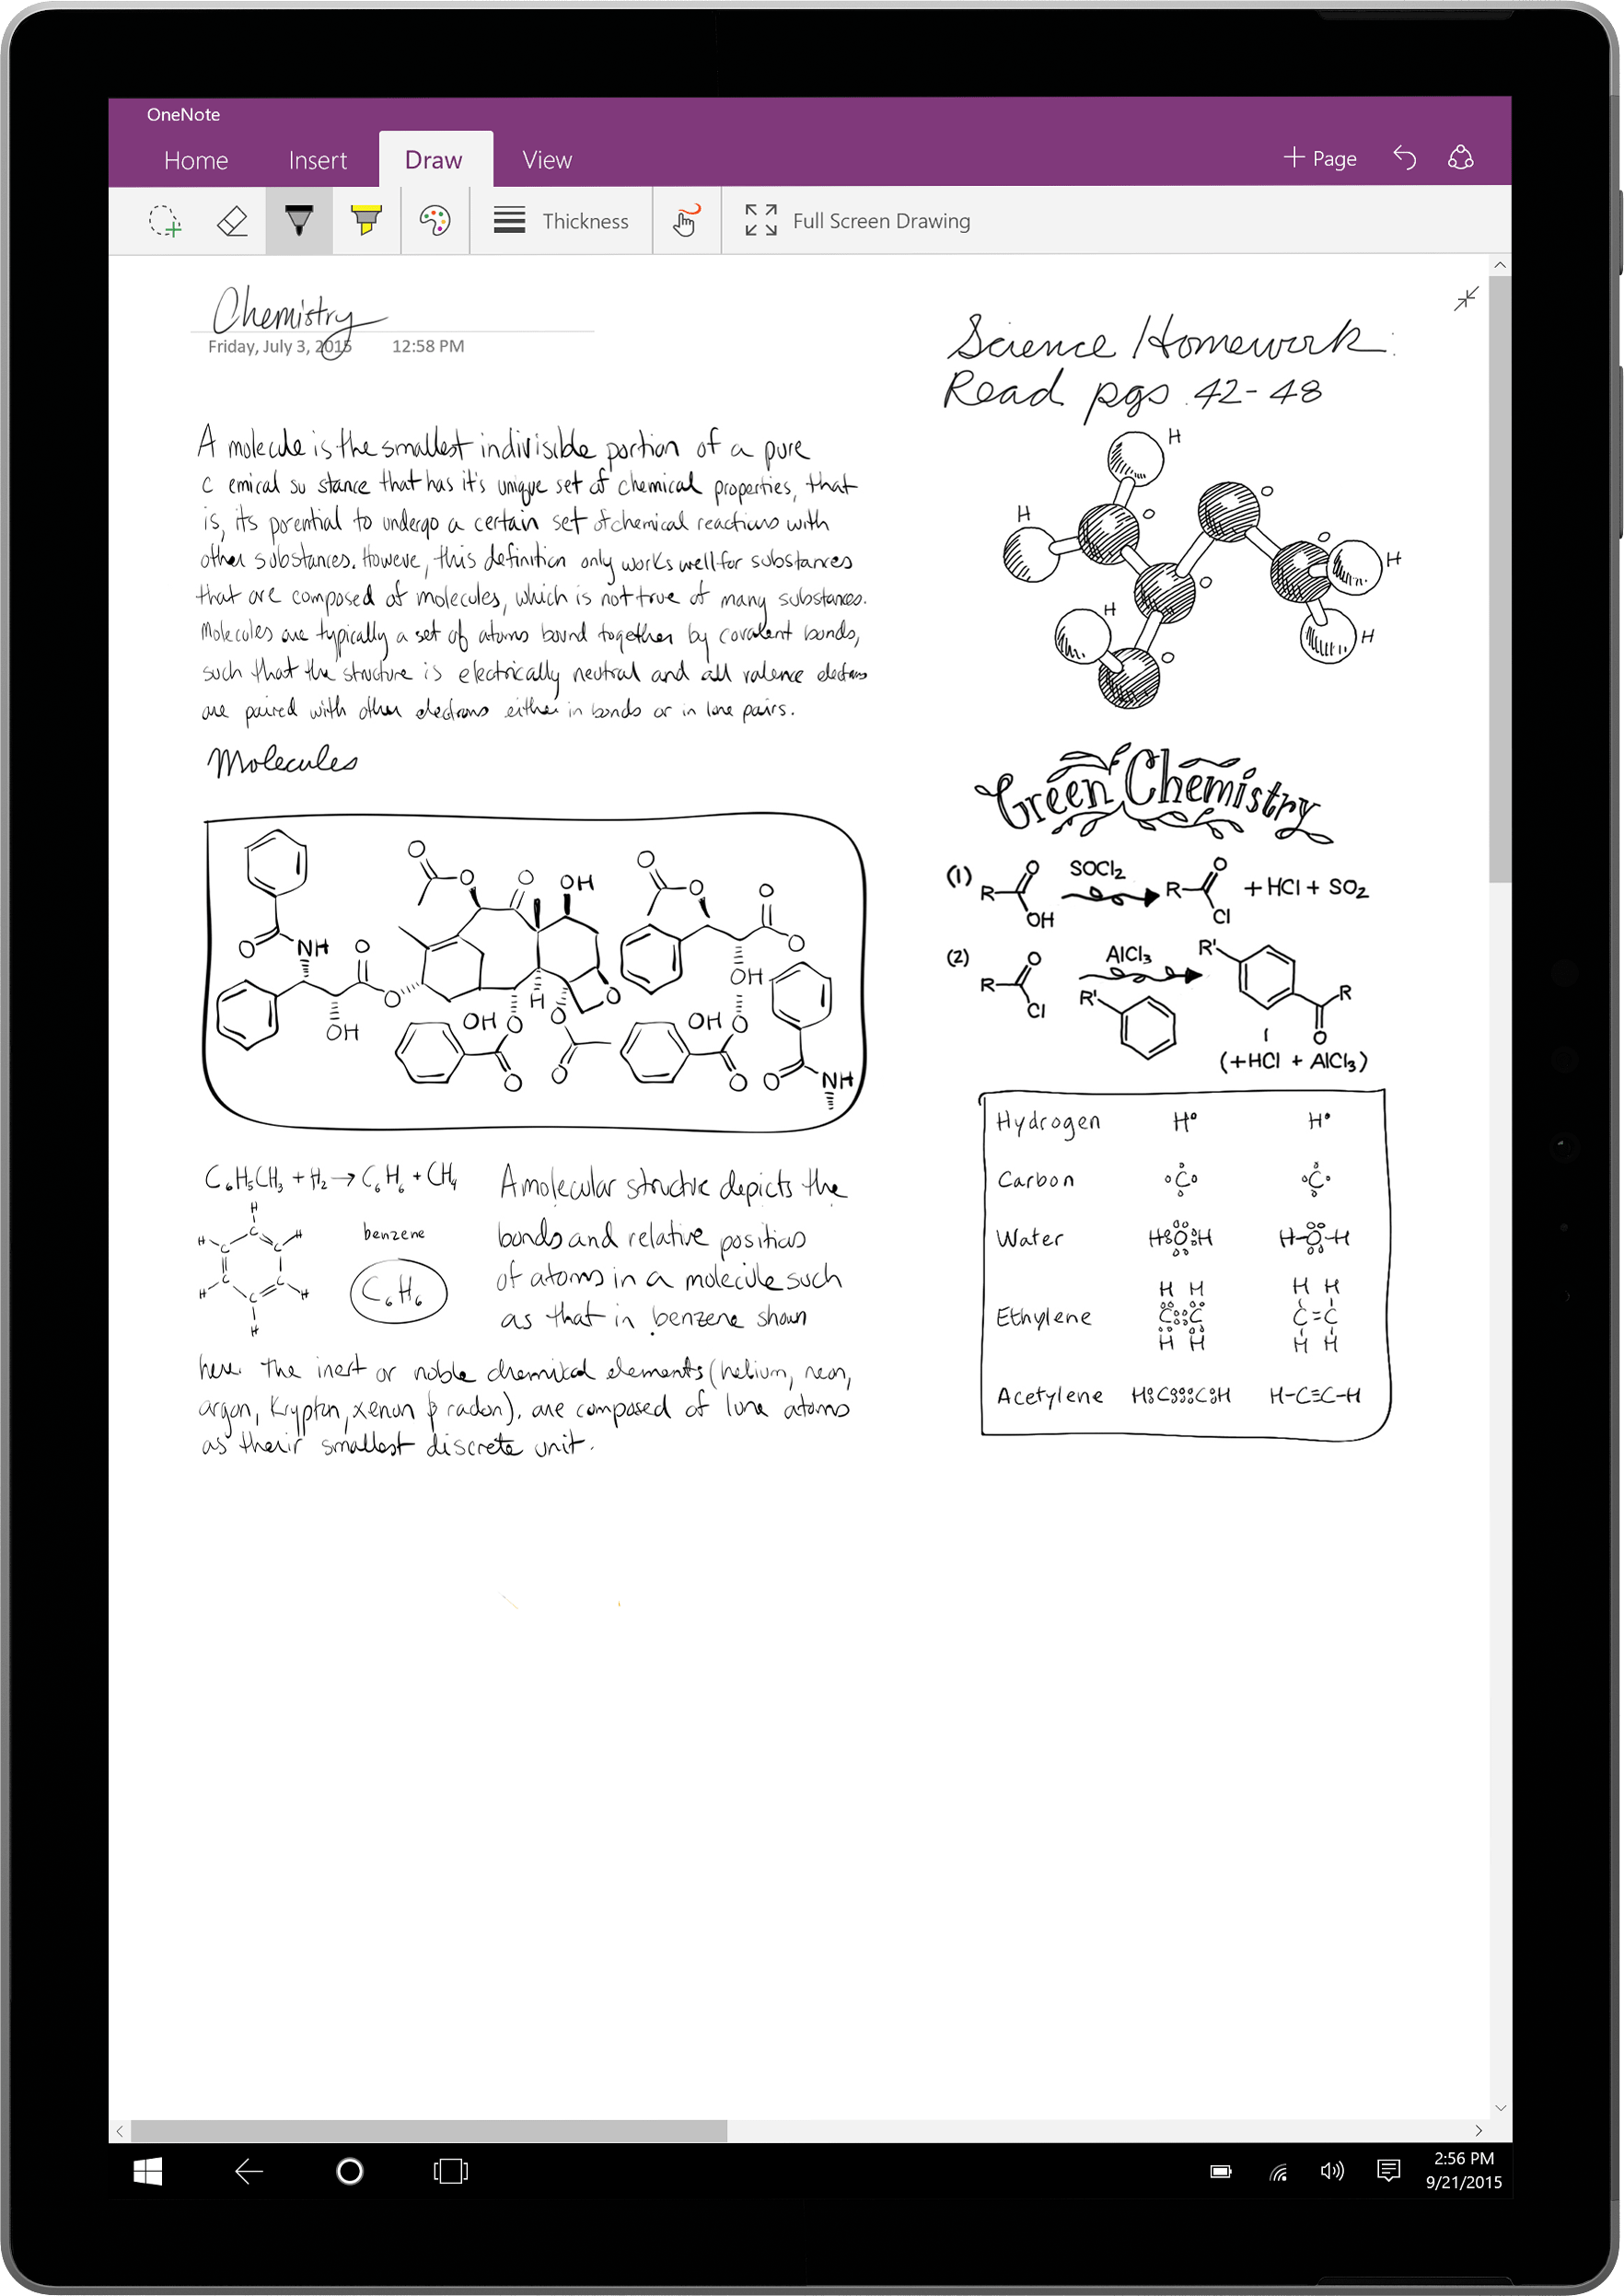 OneNote
Home Insert Draw View + Page
Thickness Full Screen Drawing
Chemistry
Friday, July 3, 2015 12:58 PM
A molecule is the smallest indivisible portion of a pure
c emical su stance that has it's unique set of chemical properties, that
is, its potential to undergo a certain set of chemical reactions with
other substances. However, this definition only works well for substances
that are composed of molecules, which is not true of many substances.
Molecules are typically a set of atoms bound together by covalent bonds,
such that the structure is electrically neutral and all valence electrons
are paired with other electrons either in bonds or in lone pairs.
Molecules
O O O OH
O NH O O
OH
H O O
OH O
O O
O O O
O
OH
OH O
O O NH
C₆H₅CH₃ + H₂ → C₆H₆ + CH₄
H
H C C C H
benzene
H C C C H
H
C₆H₆
A molecular structure depicts the
bonds and relative positions
of atoms in a molecule such
as that in benzene shown
here. The inert or noble chemical elements (helium, neon,
argon, Krypton, xenon & radon). are composed of lone atoms
as their smallest discrete unit.
Science Homework:
Read pgs. 42-48
H
H
H
H
H
Green Chemistry
(1) R O OH SOCl₂ R O Cl + HCl + SO₂
(2) R O Cl AlCl₃ R' R' R O
(+HCl + AlCl₃)
Hydrogen H H
Carbon C C
Water H O H H-O-H
Ethylene H H C C H H H H C=C H H
Acetylene H C C H H-C≡C-H
2:56 PM
9/21/2015